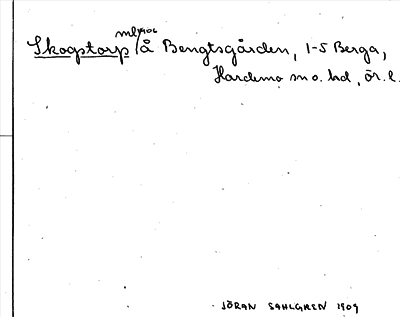 Skogstorp ml 1906 å Bengtsgården, 1-5 Berga,
Hardemo sn o. hd, ör. l.
JÖRAN SAHLGREN 1909